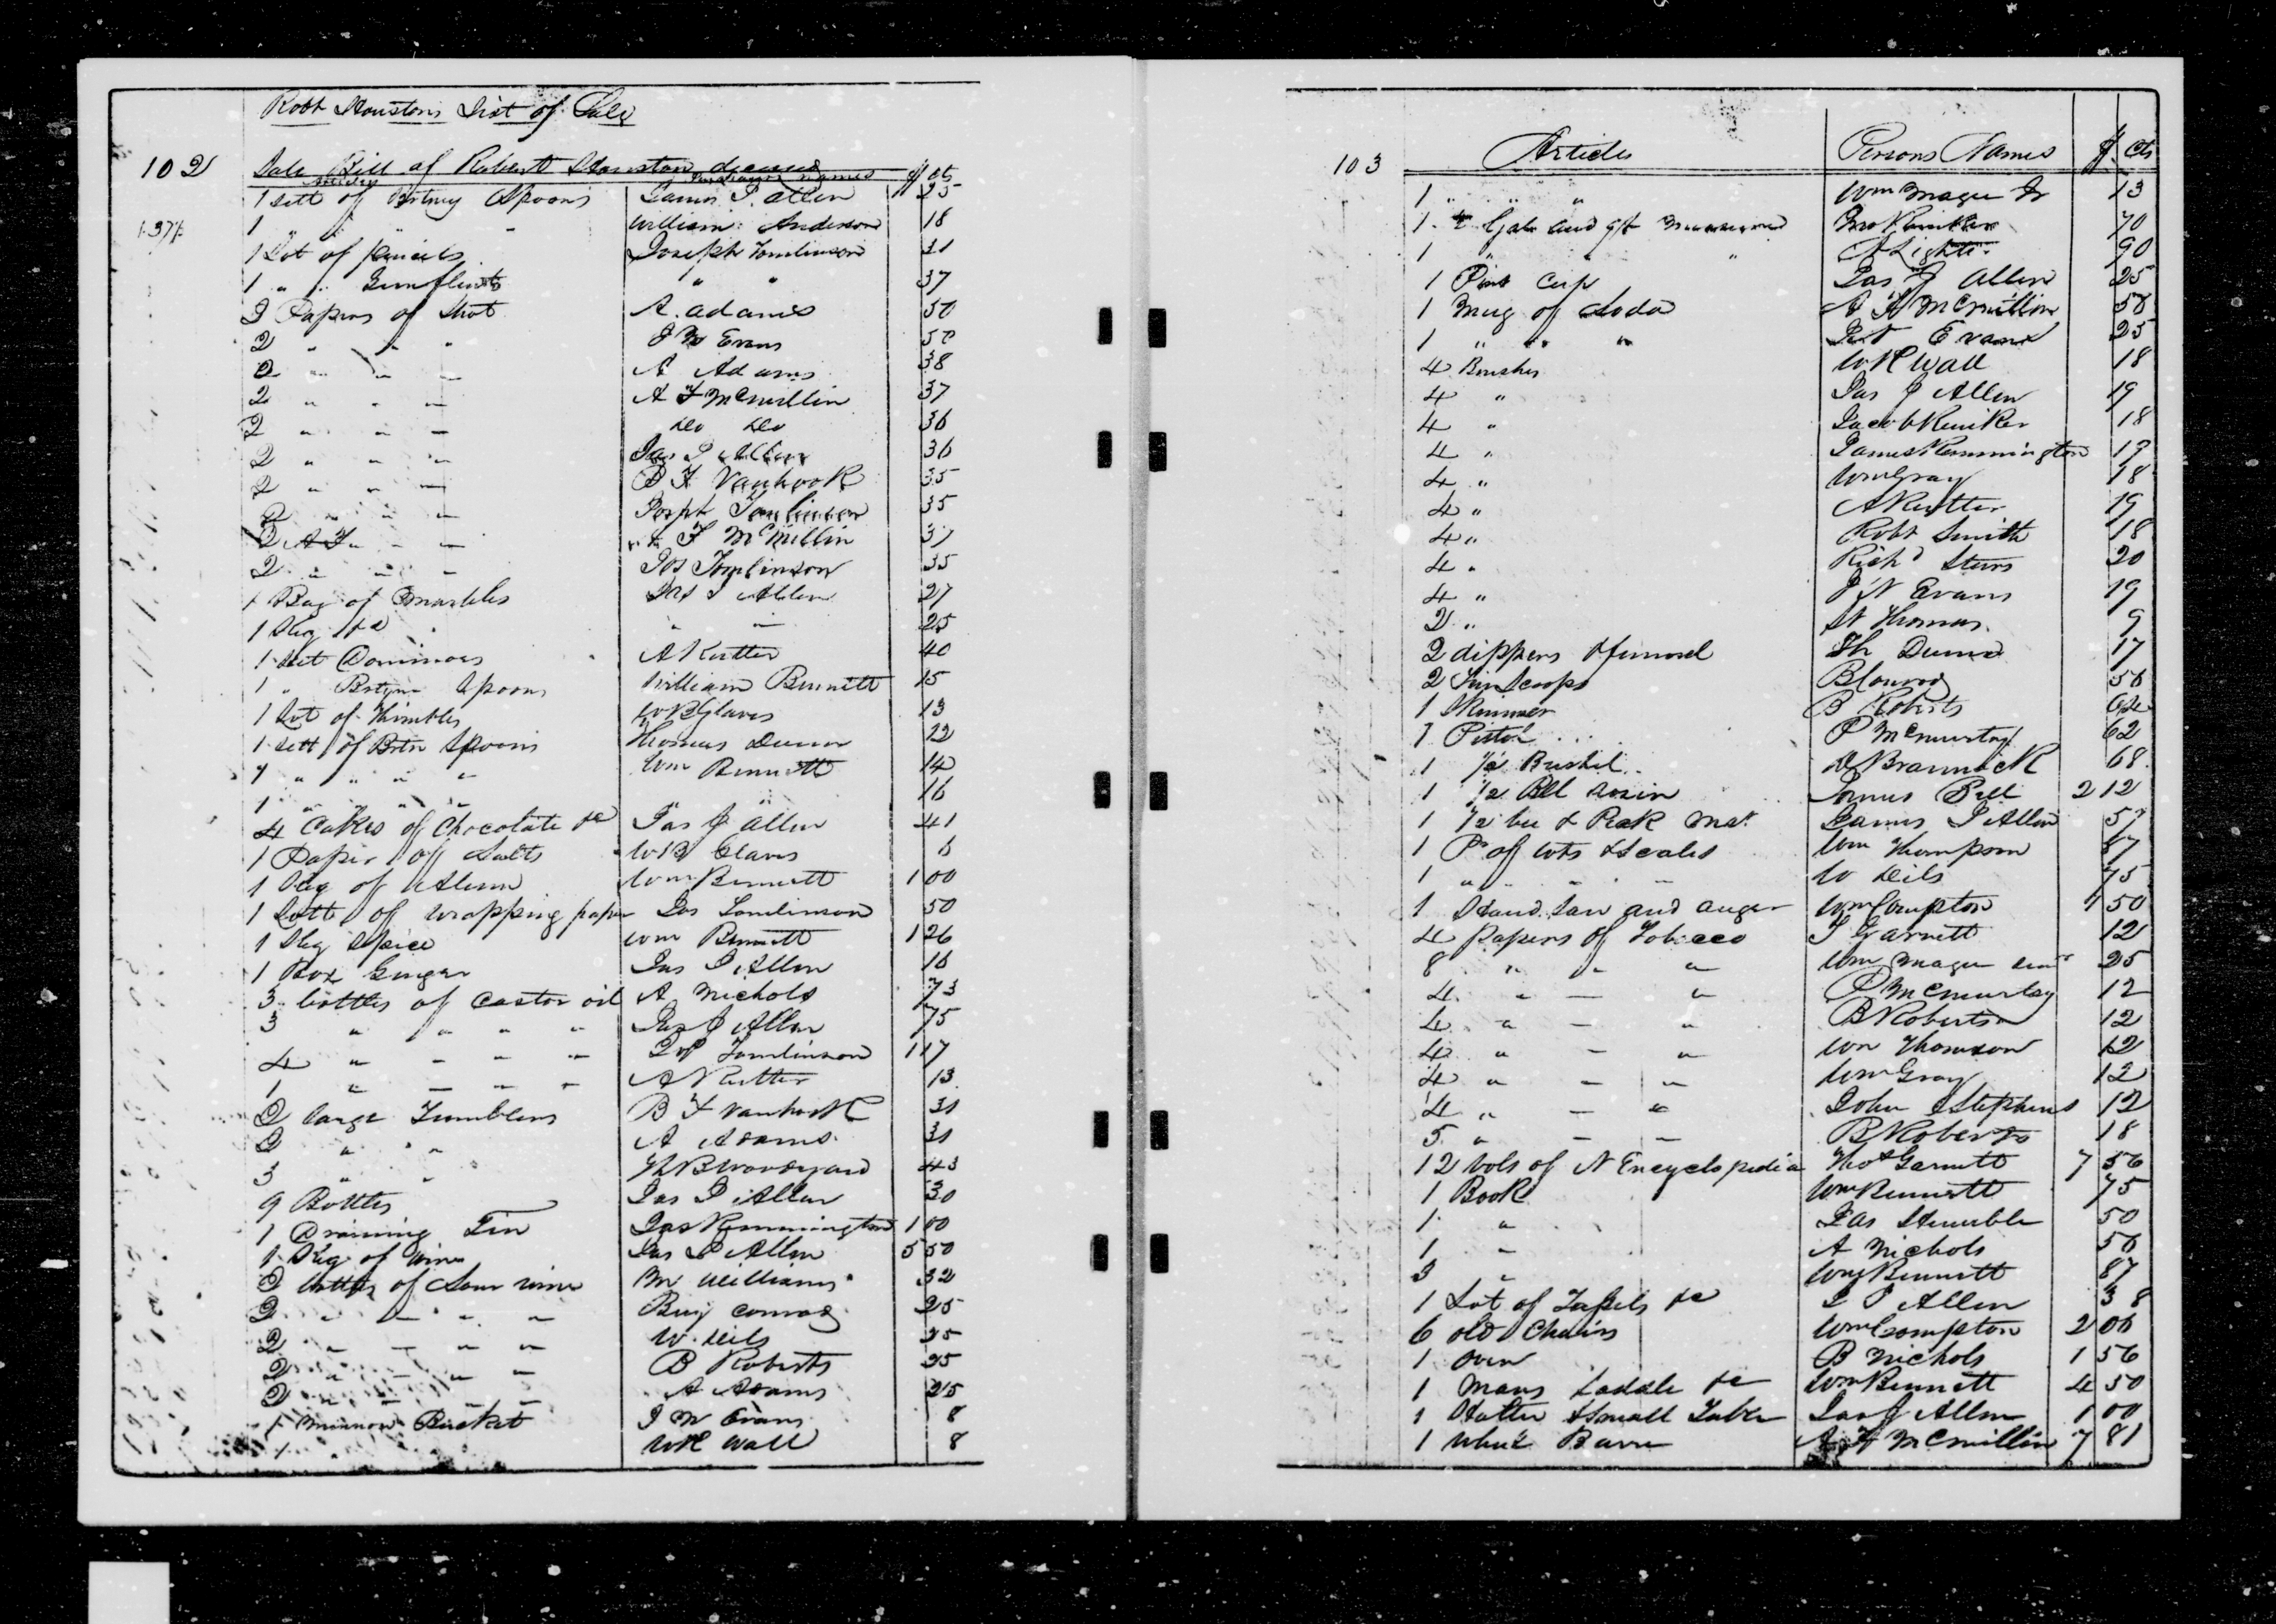 Robt Houstons List of Sale
102 Sale Bill of Robert Houston deceased
Articles Purchasers names $ cts
1 sett of Britney Spoons James J. Allen 25
1 " " William Anderson 18
1 Lot of pencils Joseph Tomlinson 31
1 " " Gunflints " " 37
2 Papers of Shot A. Adams 50
2 " " " J N Evans 50
2 " " " A Adams 38
2 " " " A F McMillin 37
2 " " " do do 36
2 " " " Jas J Allen 36
2 " " " B F Vanhook 35
2 " " " Joseph Tomlinson 35
2 " " " A F McMillin 37
2 " " " Jos Tomlinson 35
1 Bag of marbles Jas J Allen 27
1 Keg &c " " 25
1 sett Dominoes A Rutter 40
1 " Spoons William Bennett 15
1 Lot of Thimbles W B Glaves 13
1 sett of Spoons Thomas Dunn 12
1 " " " " Wm Bennett 14
1 " " " " " " 16
4 Cakes of Chocolate &c Jas J Allen 41
1 Paper of Salts W B Glaves 6
1 Keg of Alum Wm Bennett 1 00
1 Lott of wrapping paper Jos Tomlinson 50
1 Keg Spice Wm Bennett 1 26
1 Box Ginger Jas J Allen 16
3 bottles of Castor oil A Nichols 73
3 " " " " Jas J Allen 75
4 " " " " Jos Tomlinson 1 17
1 " " " " A Rutter 13
2 large Tumblers B F Vanhook 31
2 " " A Adams 31
3 " " Woodyard 43
9 Bottles Jas J Allen 30
1 Draining Tin Jas Remmington 1 00
1 Keg of wine Jas J Allen 5 50
2 bottles of Sour wine Williams 32
2 " " " " Benj Conrad 25
2 " " " " W Dils 25
2 " " " " B Roberts 25
2 " " " " A Adams 25
1 Minnow Bucket J N Evans 8
1 " W R Wall 8
103 Articles Persons Names $ cts
1 " " " Wm Magee Jr 13
1 Gal and qt measure 70
1 " " " 90
1 Pint Cup Jas J Allen 25
1 Mug of Soda A F McMillin 50
1 " " " Evans 25
4 Brushes W R Wall 18
4 " Jas J Allen 19
4 " Jacob 18
4 " James Remmington 19
4 " Wm Gray 18
4 " A Rutter 19
4 " Robt Smith 18
4 " Richd 20
4 " J N Evans 19
2 " Thomas 9
2 dippers & funnel Th Dunn 17
2 Tin Scoops B Conrad 56
1 Skimmer B Roberts
1 Pistol P McMurtry 62
1 1/2 Bushel 68
1 1/2 Bbl rosin James Bell 2 12
1 1/2 James J Allen 50
1 Pr of wts & Scales Wm Thompson 87
1 " " " " W Dils 75
1 Hand Saw and auger Wm Compton 1 50
4 papers of Tobacco T Garnett 12
8 " " " Wm Magee senr 25
4 " " " P McMurtry 12
4 " " " B Roberts 12
4 " " " Wm Thomson 12
4 " " " Wm Gray 12
4 " " " John Stephens 12
5 " " " B Roberts 18
12 vols of N Encyclopedia Thos Garnett 7 56
1 Book Wm Bennett 75
1 " Jas 50
1 " A Nichols 56
3 " Wm Bennett 87
1 Lot of &c J J Allen 38
6 old Chairs Wm Compton 2 06
1 Oven B Nichols 1 56
1 Mans Saddle &c Wm Bennett 4 50
1 Halter & Small Jas J Allen 1 00
1 A F McMillin 7 81